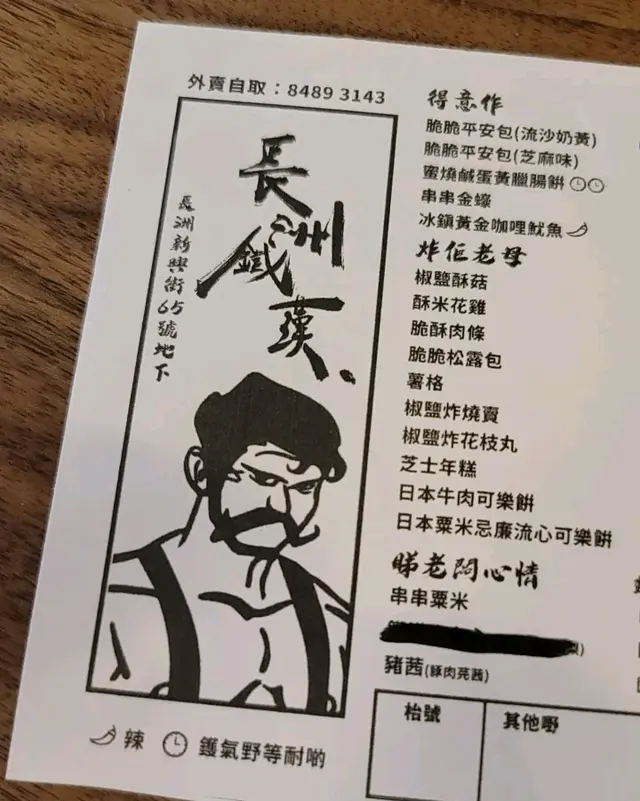 外賣自取：8489 3143
長洲鐵漢
長洲新興街65號地下
辣
鑊氣野等耐啲
得意作
脆脆平安包(流沙奶黃)
脆脆平安包(芝麻味)
蜜燒鹹蛋黃臘腸餅
串串金蠔
冰鎮黃金咖哩魷魚
炸佢老母
椒鹽酥菇
酥米花雞
脆酥肉條
脆脆松露包
薯格
椒鹽炸燒賣
椒鹽炸花枝丸
芝士年糕
日本牛肉可樂餅
日本粟米忌廉流心可樂餅
睇老闆心情
串串粟米
豬茜(豚肉芫茜)
枱號
其他嘢